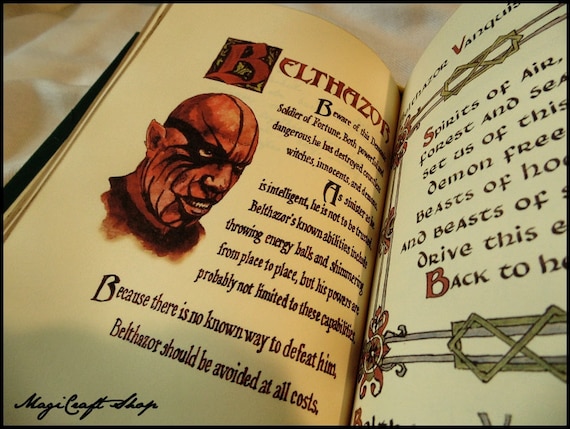 BELTHAZOR
Beware of this Demonic
Soldier of Fortune. Both powerful and
dangerous, he has destroyed countless
witches, innocents, and demons
As sinister as he
is intelligent, he is not to be trusted.
Belthazor's known abilities include
throwing energy balls and shimmering
from place to place, but his powers are
probably not limited to these capabilities.
Because there is no known way to defeat him,
Belthazor should be avoided at all costs.
Belthazor Vanquis
Spirits of air,
Forest and sea
Set us of this
demon free
Beasts of hoo
and beasts of s
drive this e
Back to he
V
MagiCraft Shop